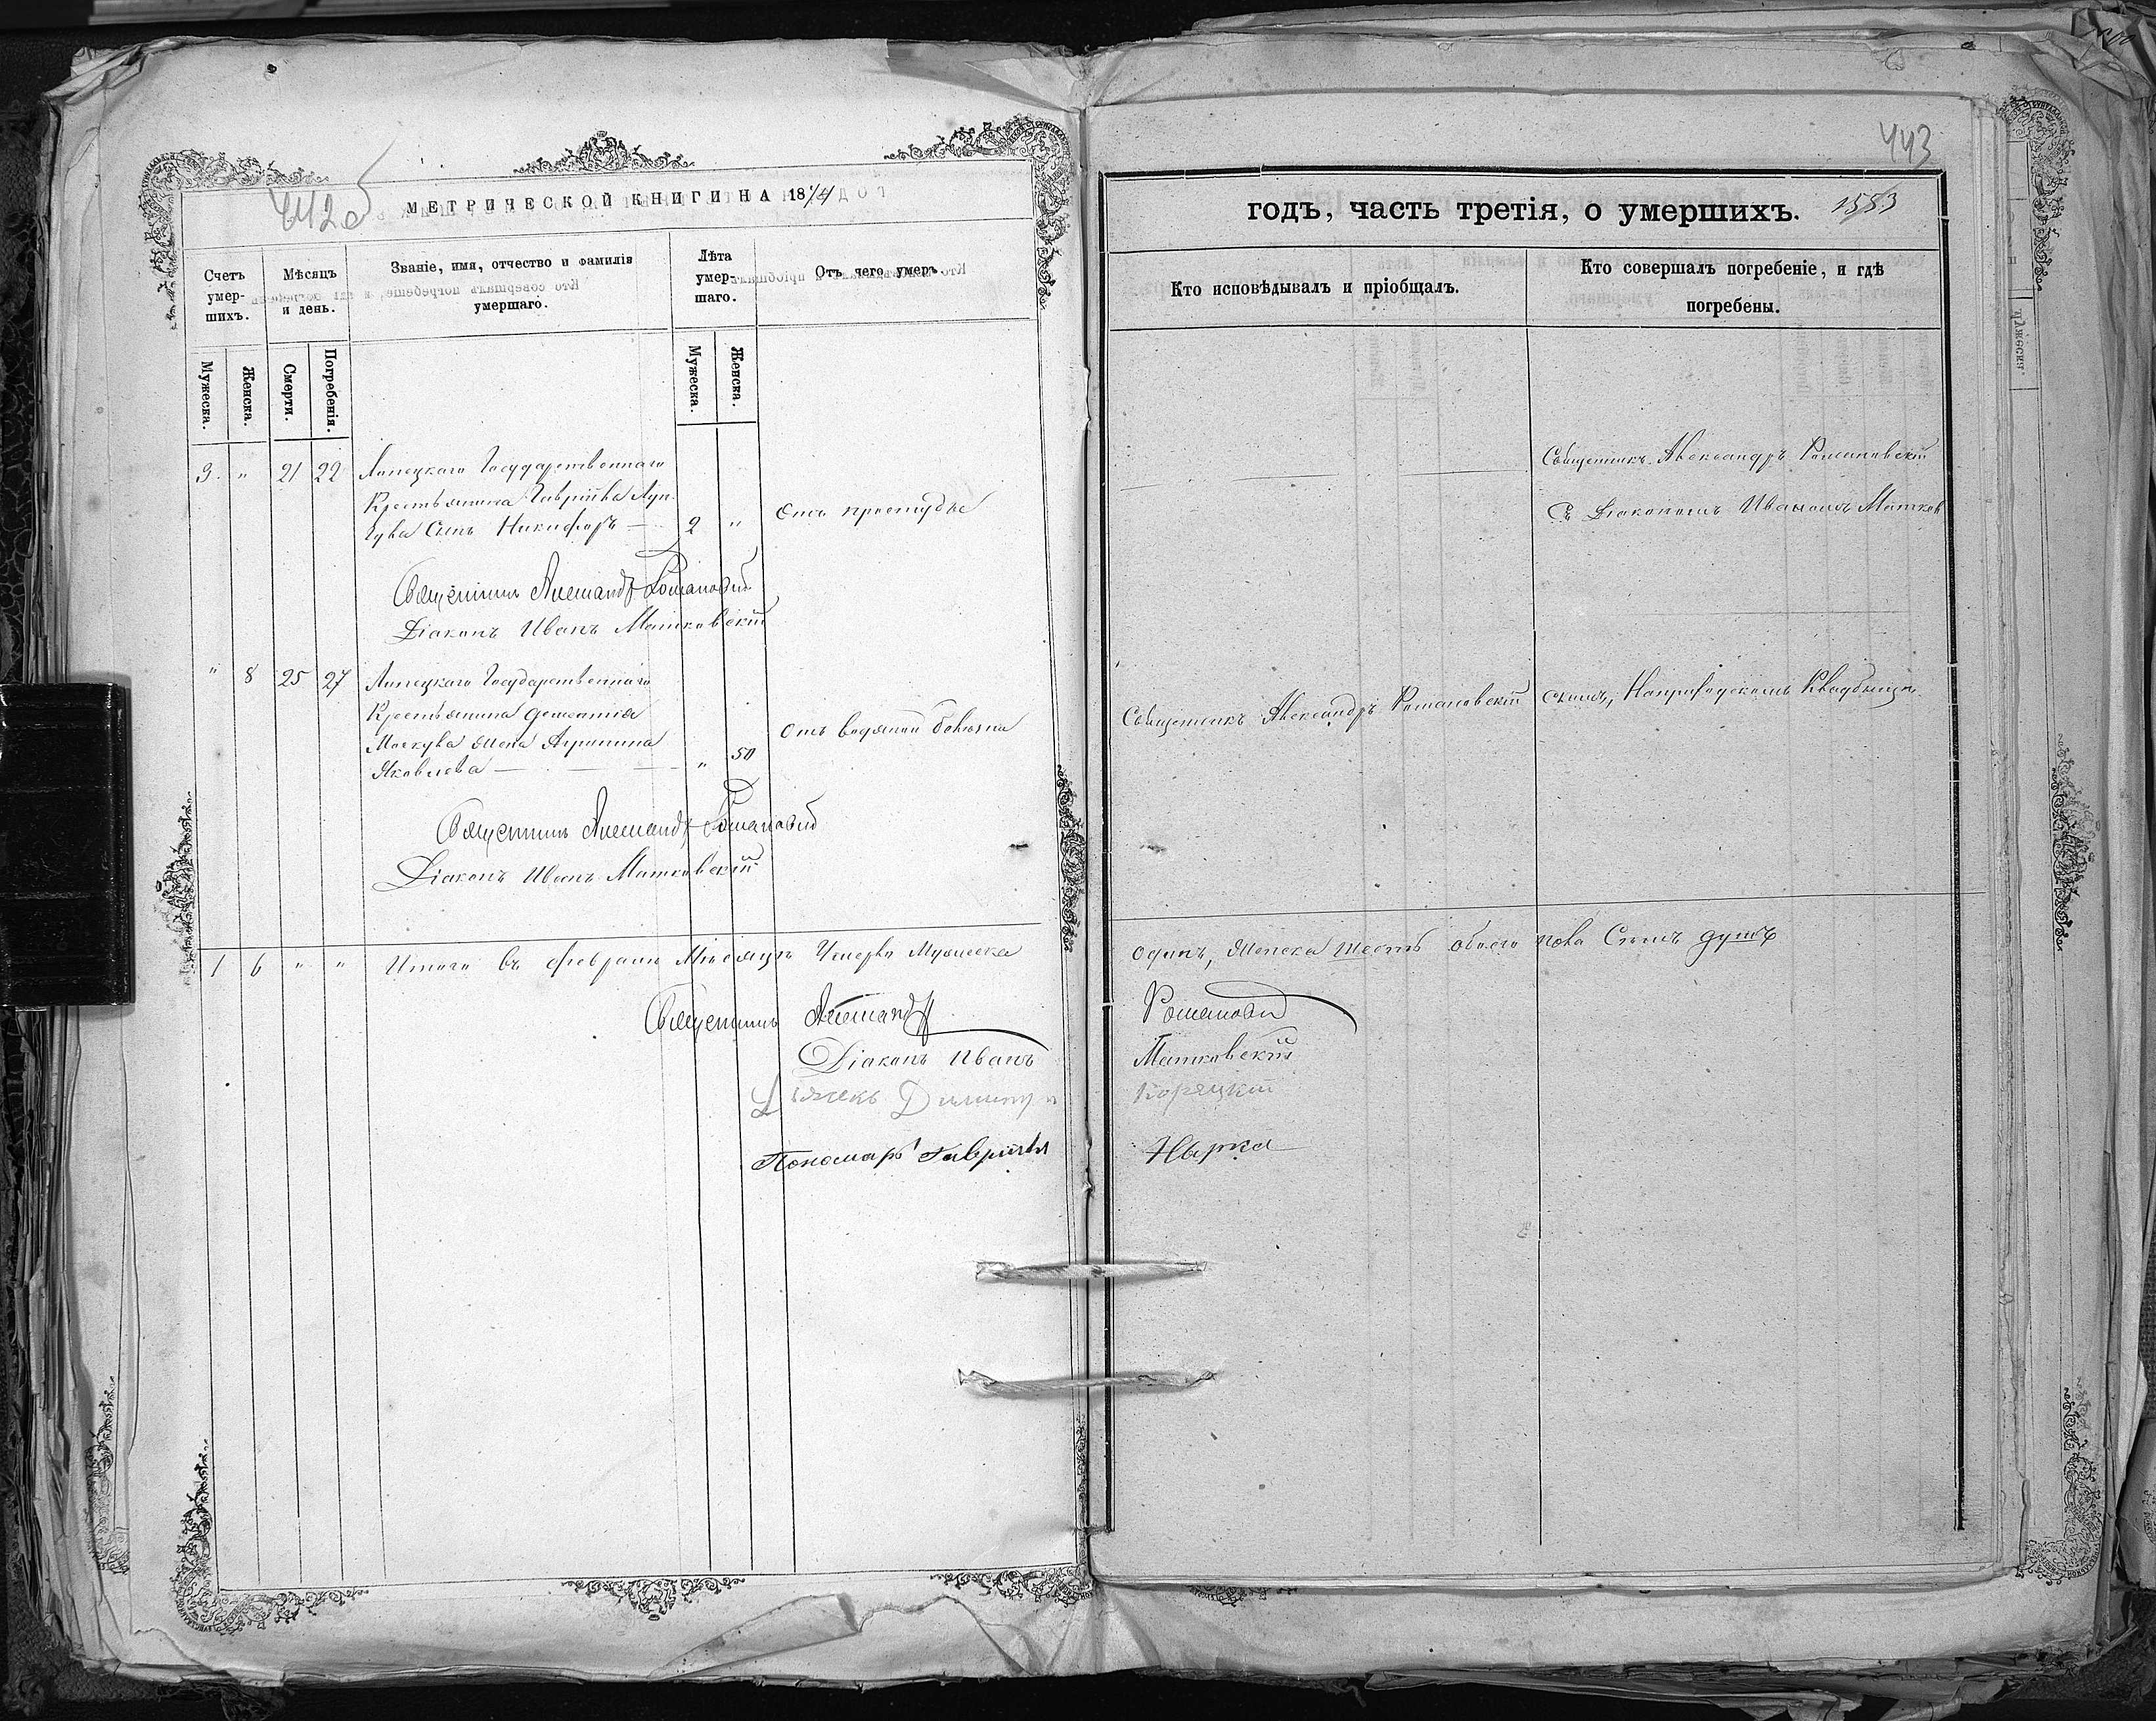 442об
МЕТРИЧЕСКОЙ КНИГИ НА 1874
Счетъ умер-шихъ.
Мѣсяцъ и день.
Званіе, имя, отчество и фамилія умершаго.
Лѣта умер-шаго.
Отъ чего умеръ.
Мужеска.
Женска.
Смерти.
Погребенія.
Мужеска.
Женска.
3. " 21 22 Липецкаго Государственнаго
Крестьянина Гавріила
Сынъ Никифоръ — 2 " Отъ простуды
Священникъ Александръ Романовскій
Діаконъ Иванъ Матковскій
" 8 25 27 Липецкаго Государственнаго
Крестьянина
жена Агрипина
Яковлева — " 50 Отъ водяной болезни
Священникъ Александръ Романовскій
Діаконъ Иванъ Матковскій
1 6 " " Итого въ феврале Мѣсяцѣ Умерло Мужеска
Священникъ Александръ
Діаконъ Иванъ
Дячекъ Димитрій
Пономарь Гавріилъ
443
годъ, часть третія, о умершихъ. 1583
Кто исповѣдывалъ и пріобщалъ.
Кто совершалъ погребеніе, и гдѣ погребены.
Священникъ Александръ Романовскій
Съ Діакономъ Иваномъ Матков
Священникъ Александръ Романовскій скимъ, На приходскомъ Кладбище
одинъ, Женска шесть обоего пола Семь душъ
Романовскій
Матковскій
Корецкій
Нырка